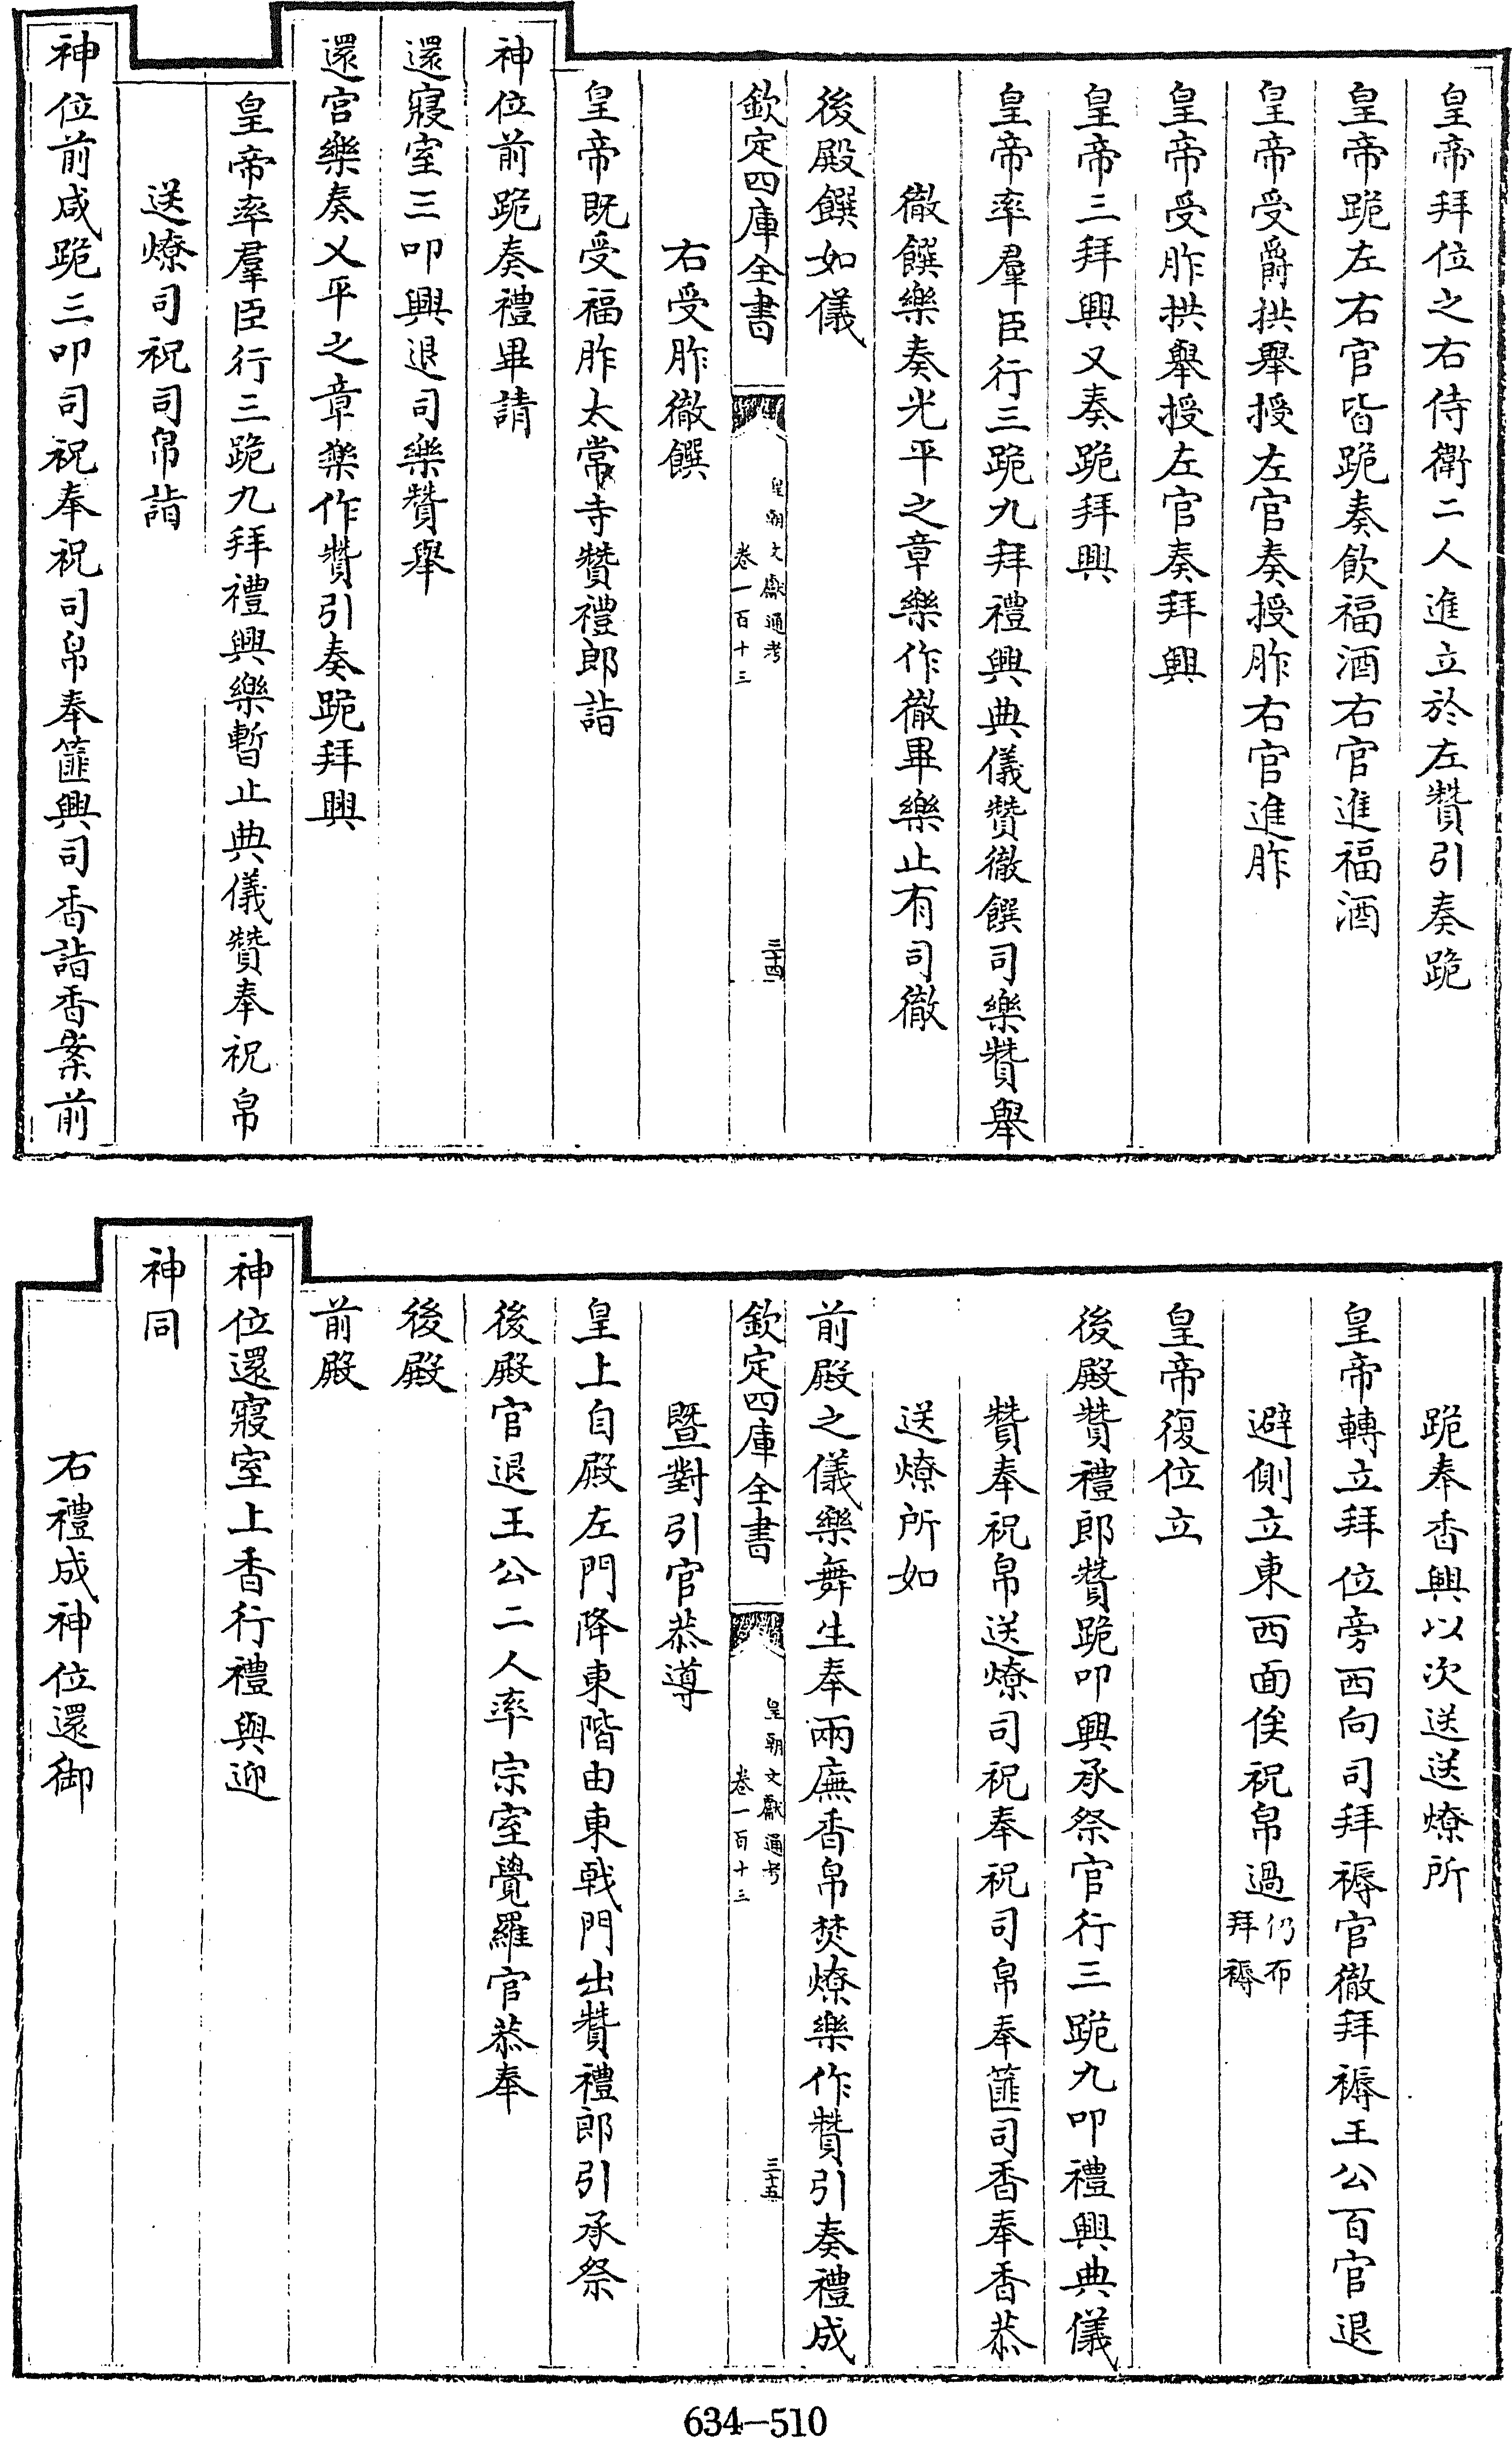 皇帝拜位之右侍衛二人進立於左贊引奏跪
皇帝跪左右官皆跪奏飲福酒右官進福酒
皇帝受爵拱舉授左官奏授胙右官進胙
皇帝受胙拱舉授左官奏拜興
皇帝三拜興又奏跪拜興
皇帝率羣臣行三跪九拜禮興典儀贊徹饌司樂贊舉
徹饌樂奏光平之章樂作徹畢樂止有司徹
後殿饌如儀
欽定四庫全書
皇朝文獻通考
卷一百十三
三十四
右受胙徹饌
皇帝既受福胙太常寺贊禮郎詣
神位前跪奏禮畢請
還寢室三叩興退司樂贊舉
還宮樂奏乂平之章樂作贊引奏跪拜興
皇帝率羣臣行三跪九拜禮興樂暫止典儀贊奉祝帛
送燎司祝司帛詣
神位前咸跪三叩司祝奉祝司帛奉篚興司香詣香案前
跪奉香興以次送送燎所
皇帝轉立拜位旁西向司拜褥官徹拜褥王公百官退
避側立東西面俟祝帛過仍布
拜褥
皇帝復位立
後殿贊禮郎贊跪叩興承祭官行三跪九叩禮興典儀
贊奉祝帛送燎司祝奉祝司帛奉篚司香奉香恭
送燎所如
前殿之儀樂舞生奉兩廡香帛焚燎樂作贊引奏禮成
欽定四庫全書
皇朝文獻通考
卷一百十三
三十五
暨對引官恭導
皇上自殿左門降東階由東戟門出贊禮郎引承祭
後殿官退王公二人率宗室覺羅官恭奉
後殿
前殿
神位還寢室上香行禮與迎
神同
右禮成神位還御
634—510